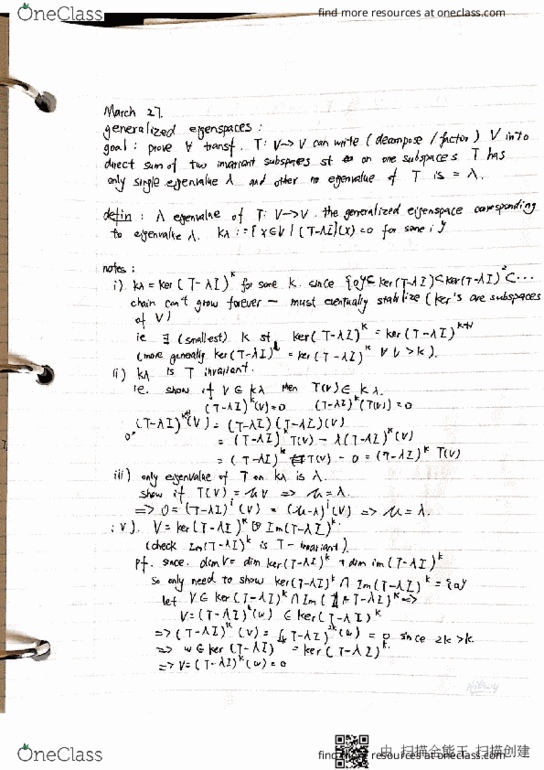 OneClass
find more resources at oneclass.com
March 27.
generalized eigenspaces :
goal : prove ∀ transf. T: V→V can write (decompose / factor) V into
direct sum of two invariant subspaces st on one subspaces T has
only single eigenvalue λ and other no eigenvalue of T is = λ.
defin : λ eigenvalue of T: V→V. the generalized eigenspace corresponding
to eigenvalue λ. Kλ := {x∈V | (T-λI)^i(x) = 0 for some i}
notes :
i) Kλ = ker (T-λI)^k for some k. since {0} ⊂ ker(T-λI) ⊂ ker(T-λI)^2 ⊂ ...
chain can't grow forever — must eventually stabilize (ker's are subspaces
of V)
ie ∃ (smallest) k st, ker(T-λI)^k = ker(T-λI)^k+1
(more generally ker(T-λI)^l = ker(T-λI)^k ∀ l > k).
ii) Kλ is T invariant.
ie. show if V ∈ Kλ then T(v) ∈ Kλ.
(T-λI)^k(v) = 0 (T-λI)^k(T(v)) = 0
(T-λI)^k+1(v) = (T-λI)(T-λI)(v)
0 = (T-λI)^k T(v) - λ(T-λI)^k(v)
= (T-λI)^k T(v) - 0 = (T-λI)^k T(v)
iii) only eigenvalue of T on Kλ is λ.
show if T(v) = μv => μ = λ.
=> 0 = (T-λI)^i (v) = (μ-λ)^i (v) => μ = λ.
iv). V = ker(T-λI)^k ⊕ Im(T-λI)^k.
(check Im(T-λI)^k is T-invariant).
pf. since. dim V = dim ker(T-λI)^k + dim im(T-λI)^k
so only need to show ker(T-λI)^k ∩ Im(T-λI)^k = {0}
let V ∈ ker(T-λI)^k ∩ Im(T-λI)^k =>
V = (T-λI)^k(w) ∈ ker(T-λI)^k
=> (T-λI)^k (v) = (T-λI)^2k(w) = 0 since 2k > k.
=> w ∈ ker(T-λI) = ker(T-λI)^k.
=> V = (T-λI)^k(w) = 0
OneClass
find more resources at oneclass.com
扫描全能王 扫描创建